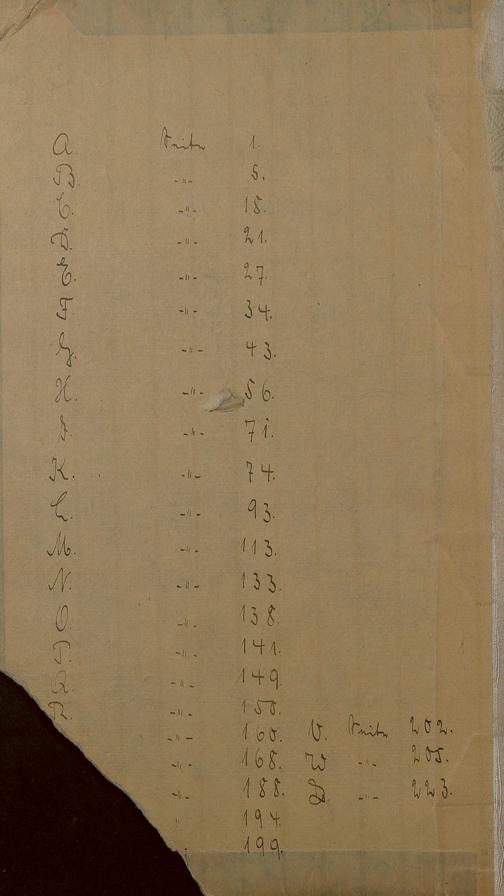 A. Seite 1.
B. -"- 5.
C. -"- 18.
D. -"- 21.
E. -"- 27.
F. -"- 34.
G. -"- 43.
H. -"- 56.
I. -"- 71.
K. -"- 74.
L. -"- 93.
M. -"- 113.
N. -"- 133.
O. -"- 138.
P. -"- 141.
Q. -"- 149.
R. -"- 150.
-"- 160. V. Seite 202.
-"- 168. W -"- 205.
-"- 188. Z. -"- 223.
" 194.
199.